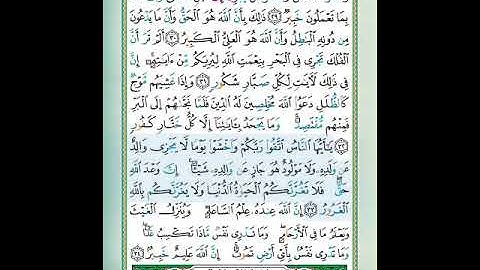 بِمَا تَعْمَلُونَ خَبِيرٌ ٢٩ ذَٰلِكَ بِأَنَّ ٱللَّهَ هُوَ ٱلْحَقُّ وَأَنَّ مَا يَدْعُونَ
مِن دُونِهِ ٱلْبَٰطِلُ وَأَنَّ ٱللَّهَ هُوَ ٱلْعَلِىُّ ٱلْكَبِيرُ ٣٠ أَلَمْ تَرَ أَنَّ
ٱلْفُلْكَ تَجْرِى فِى ٱلْبَحْرِ بِنِعْمَتِ ٱللَّهِ لِيُرِيَكُم مِّنْ ءَايَٰتِهِۦٓ إِنَّ
فِى ذَٰلِكَ لَءَايَٰتٍ لِّكُلِّ صَبَّارٍ شَكُورٍ ٣١ وَإِذَا غَشِيَهُم مَّوْجٌ
كَٱلظُّلَلِ دَعَوُا۟ ٱللَّهَ مُخْلِصِينَ لَهُ ٱلدِّينَ فَلَمَّا نَجَّىٰهُمْ إِلَى ٱلْبَرِّ
فَمِنْهُم مُّقْتَصِدٌ وَمَا يَجْحَدُ بِـَٔايَٰتِنَآ إِلَّا كُلُّ خَتَّارٍ كَفُورٍ
٣٢ يَٰٓأَيُّهَا ٱلنَّاسُ ٱتَّقُوا۟ رَبَّكُمْ وَٱخْشَوْا۟ يَوْمًا لَّا يَجْزِى وَالِدٌ
عَن وَلَدِهِۦ وَلَا مَوْلُودٌ هُوَ جَازٍ عَن وَالِدِهِۦ شَيْـًٔا إِنَّ وَعْدَ ٱللَّهِ
حَقٌّ فَلَا تَغُرَّنَّكُمُ ٱلْحَيَوٰةُ ٱلدُّنْيَا وَلَا يَغُرَّنَّكُم بِٱللَّهِ
ٱلْغَرُورُ ٣٣ إِنَّ ٱللَّهَ عِندَهُۥ عِلْمُ ٱلسَّاعَةِ وَيُنَزِّلُ ٱلْغَيْثَ
وَيَعْلَمُ مَا فِى ٱلْأَرْحَامِ وَمَا تَدْرِى نَفْسٌ مَّاذَا تَكْسِبُ غَدًا
وَمَا تَدْرِى نَفْسٌۢ بِأَىِّ أَرْضٍ تَمُوتُ إِنَّ ٱللَّهَ عَلِيمٌ خَبِيرٌۢ ٣٤